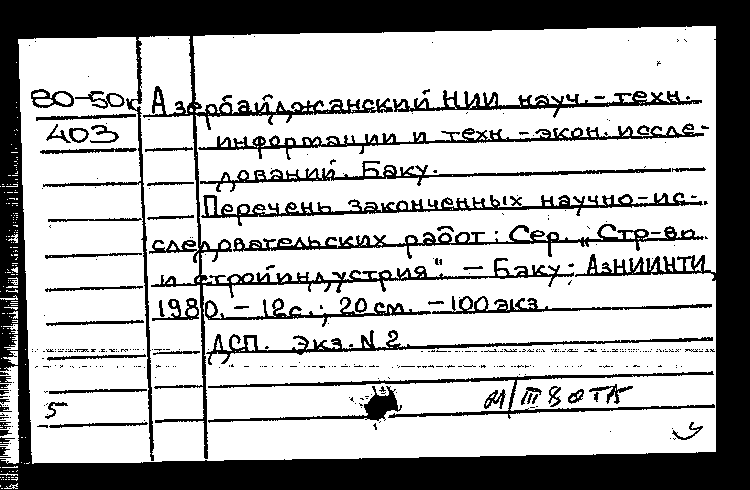 80-50к Азербайджанский НИИ науч.-техн.
403 информации и техн.-экон. иссле-
дований. Баку.
Перечень законченных научно-ис-
следовательских работ: Сер. „Стр-во
и стройиндустрия". — Баку: АзНИИНТИ,
1980. — 12с.; 20см. — 100экз.
ДСП. Экз. N 2.
5